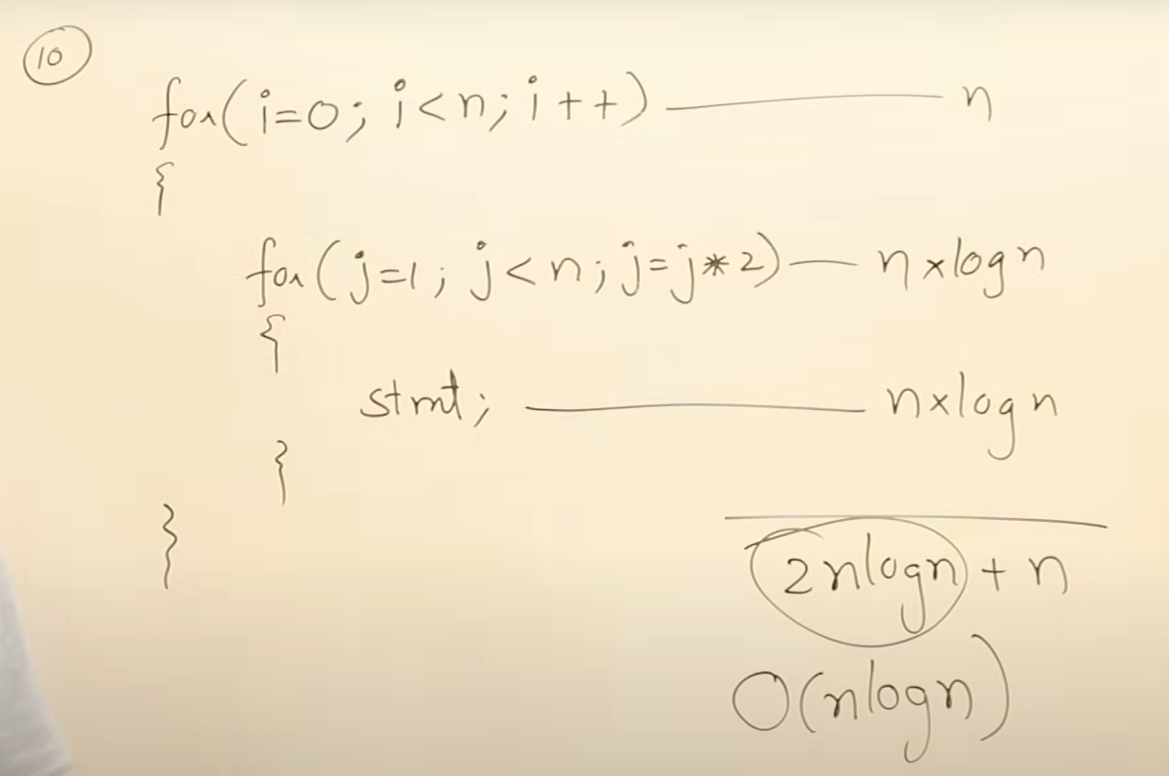 10
for(i=0; i<n; i++) — n
{
for(j=1; j<n; j=j*2) — n×logn
{
stmt; — n×logn
}
}
2nlogn + n
O(nlogn)